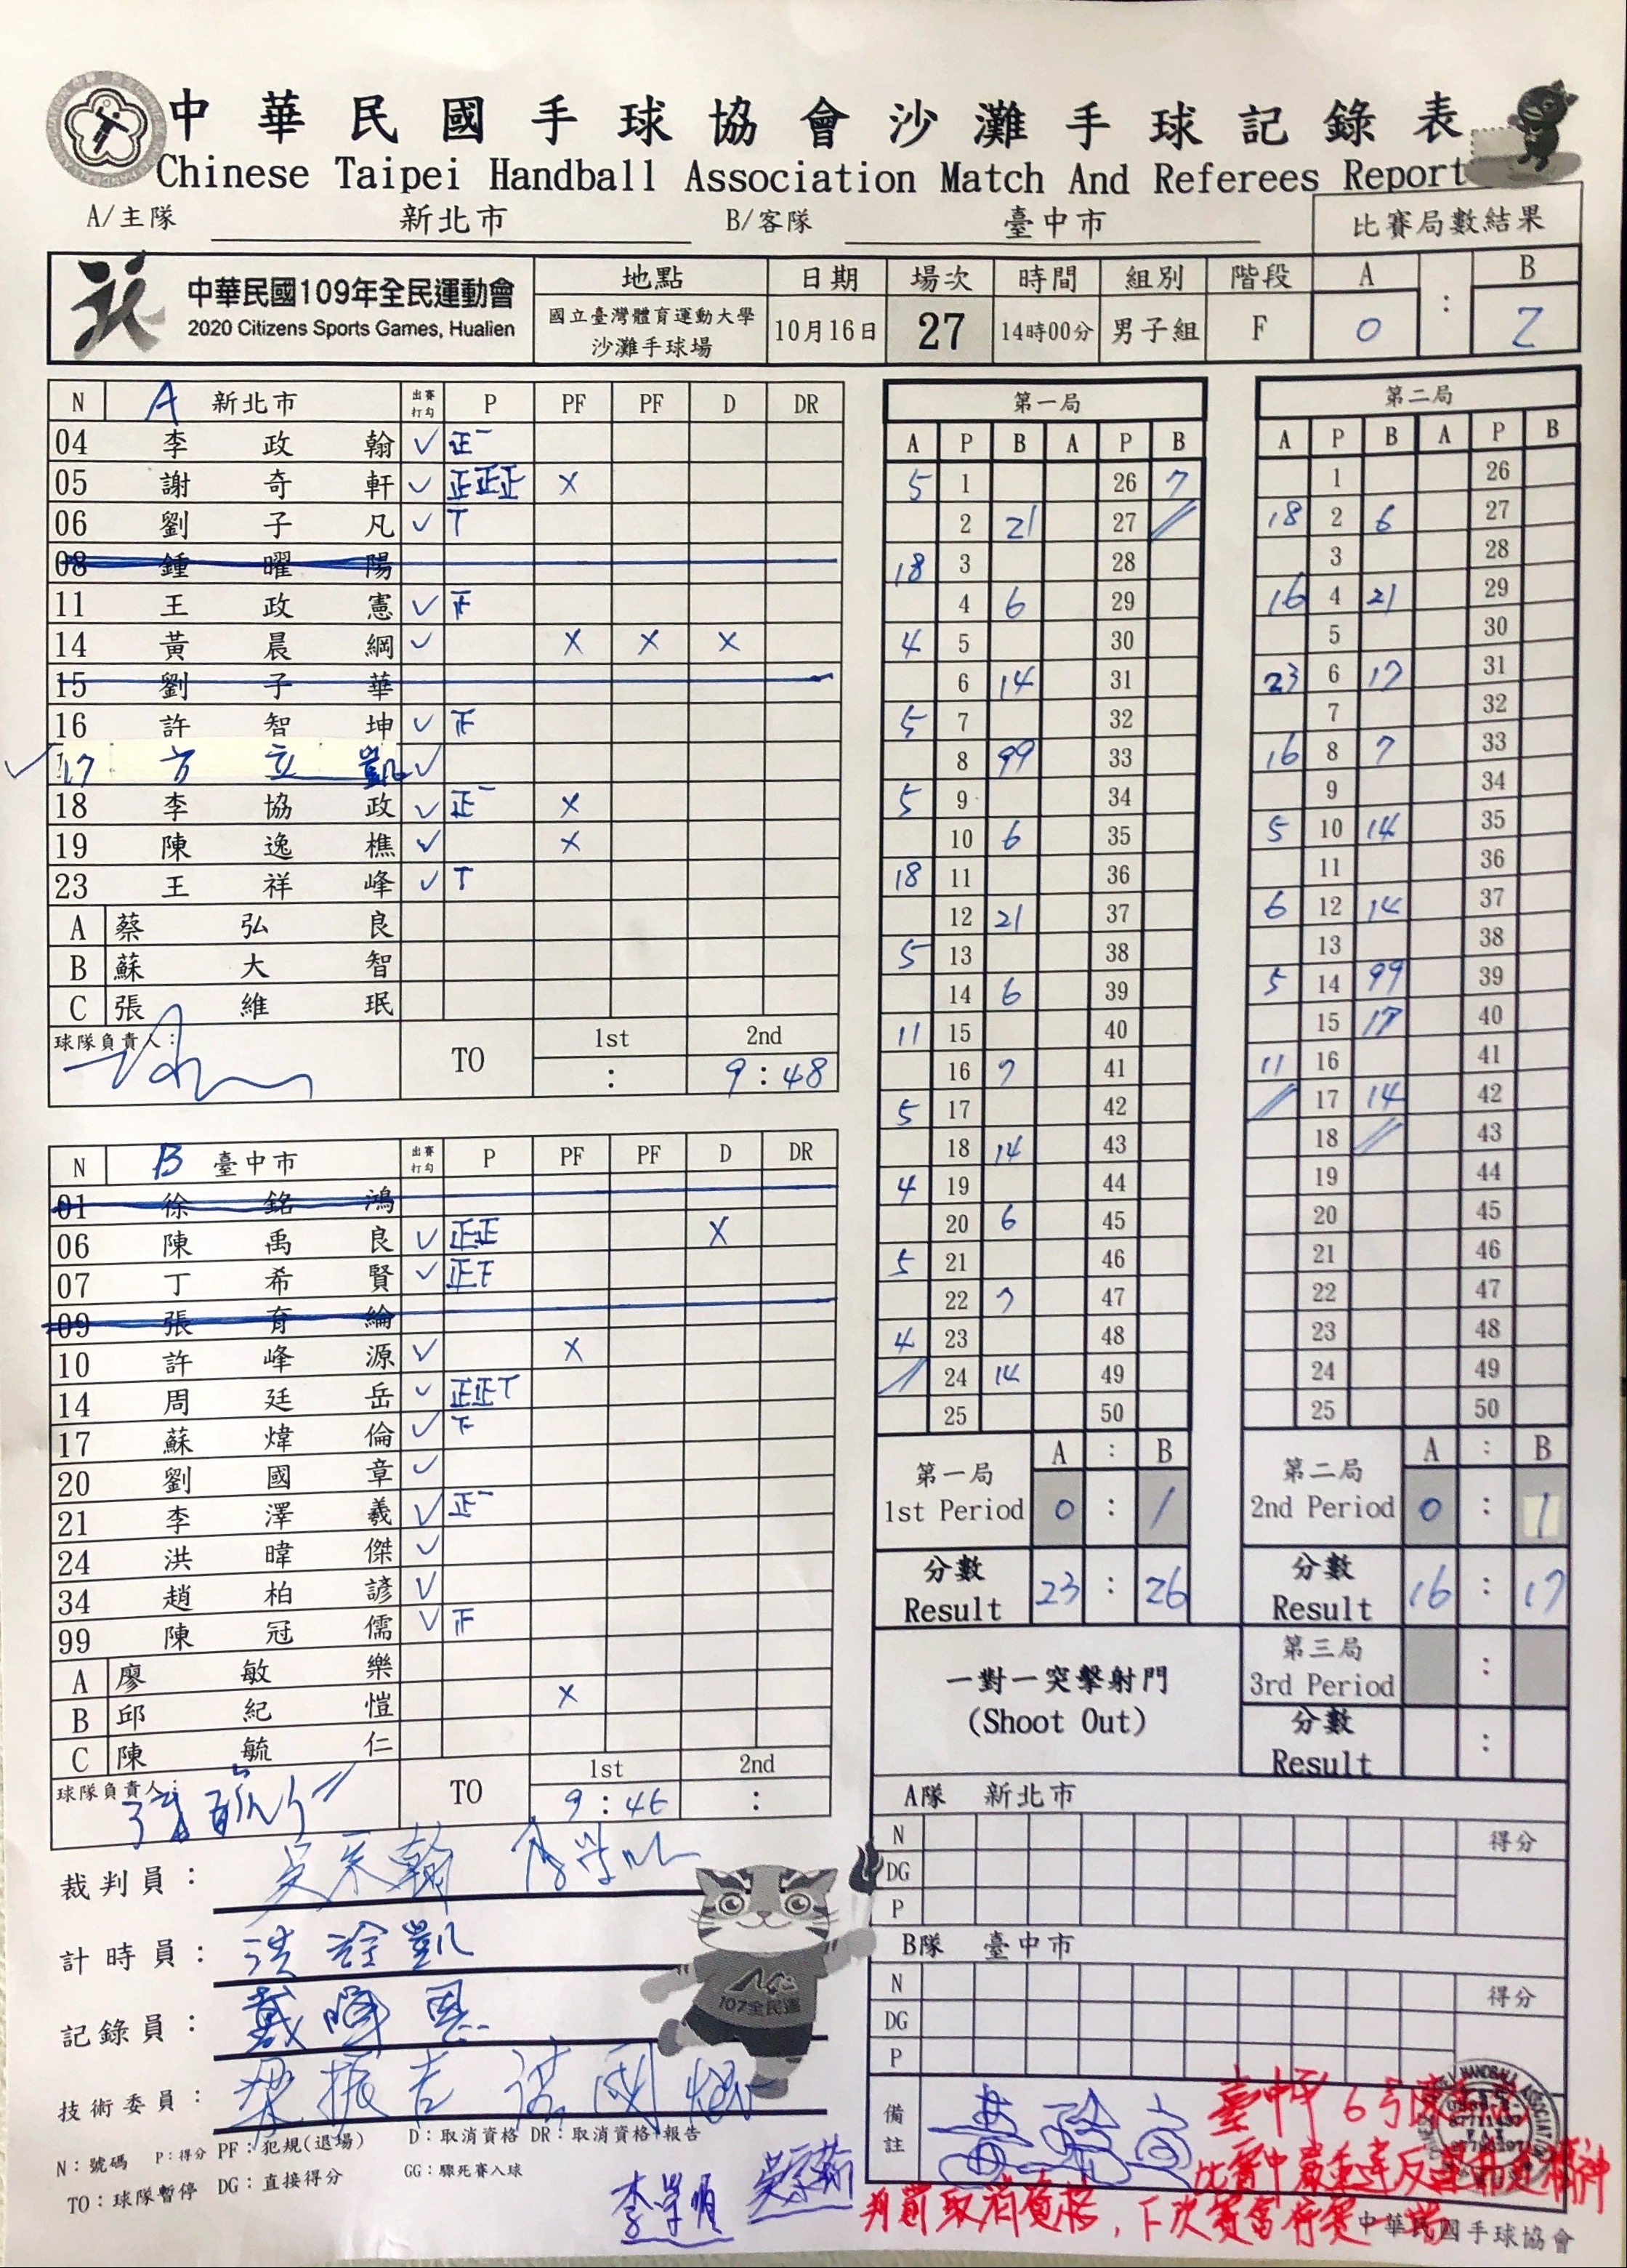 中華民國手球協會沙灘手球記錄表
Chinese Taipei Handball Association Match And Referees Report
A/主隊 新北市 B/客隊 臺中市 比賽局數結果
中華民國109年全民運動會 地點 日期 場次 時間 組別 階段 A : B
2020 Citizens Sports Games, Hualien 國立臺灣體育運動大學 沙灘手球場 10月16日 27 14時00分 男子組 F 0 2
N A 新北市 出賽打勾 P PF PF D DR
04 李政翰 ✓ 正一
05 謝奇軒 ✓ 正正正 X
06 劉子凡 ✓ T
08 鍾曜陽
11 王政憲 ✓ 下
14 黃晨綱 ✓ X X X
15 劉子華
16 許智坤 ✓ 下
✓ 17 方立凱 ✓
18 李協政 ✓ 正一 X
19 陳逸樵 ✓ X
23 王祥峰 ✓ T
A 蔡弘良
B 蘇大智
C 張維珉
球隊負責人: TO 1st : 2nd 9:48
N B 臺中市 出賽打勾 P PF PF D DR
01 徐銘鴻
06 陳禹良 ✓ 正正 X
07 丁希賢 ✓ 正下
09 張育綸
10 許峰源 ✓ X
14 周廷岳 ✓ 正正T
17 蘇煒倫 ✓ 下
20 劉國章 ✓
21 李澤羲 ✓ 正一
24 洪暐傑 ✓
34 趙柏諺 ✓
99 陳冠儒 ✓ 下
A 廖敏樂
B 邱紀愷 X
C 陳毓仁
球隊負責人: TO 1st 9:46 2nd :
第一局
A P B A P B
5 1 26 7
2 21 27
18 3 28
4 6 29
4 5 30
6 14 31
5 7 32
8 99 33
5 9 34
10 6 35
18 11 36
12 21 37
5 13 38
14 6 39
11 15 40
16 7 41
5 17 42
18 14 43
4 19 44
20 6 45
5 21 46
22 7 47
4 23 48
24 14 49
25 50
第一局 1st Period A : B 0 : 1
分數 Result 23 : 26
第二局
A P B A P B
1 26
18 2 6 27
3 28
16 4 21 29
5 30
23 6 17 31
7 32
16 8 7 33
9 34
5 10 14 35
11 36
6 12 14 37
13 38
5 14 99 39
15 17 40
11 16 41
17 14 42
18 43
19 44
20 45
21 46
22 47
23 48
24 49
25 50
第二局 2nd Period A : B 0 : 1
分數 Result 16 : 17
一對一突擊射門
(Shoot Out)
第三局 3rd Period :
分數 Result :
A隊 新北市
N 得分
DG
P
B隊 臺中市
N 得分
DG
P
裁判員:
計時員: 洪詮凱
記錄員:
技術委員:
107全民運
備註
臺中市6號陳
比賽中嚴重違反運動精神
判罰取消資格,下次賽當停賽一場
N:號碼 P:得分 PF:犯規(退場) D:取消資格 DR:取消資格+報告
TO:球隊暫停 DG:直接得分 GG:驟死賽入球
中華民國手球協會